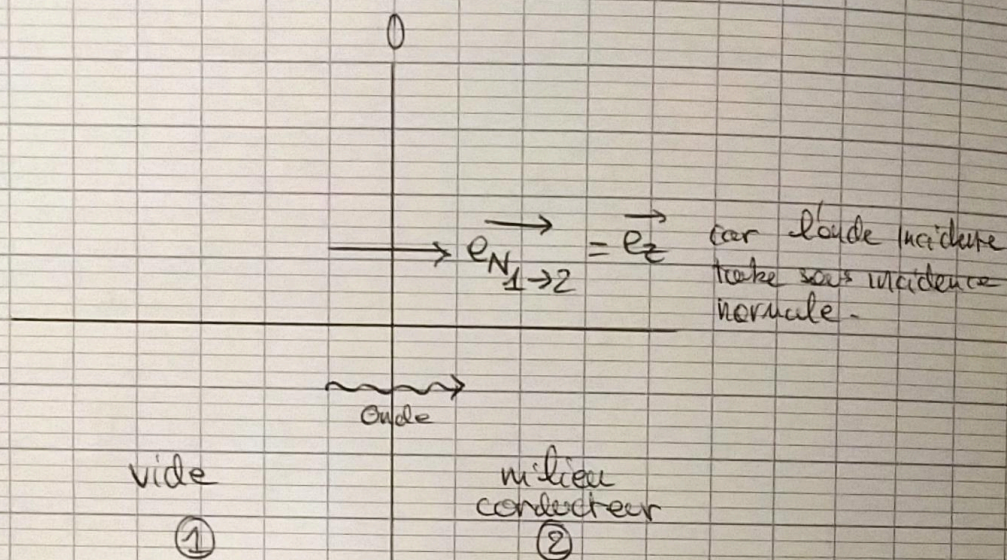 0
e_N_1→2 = e_z car l'onde incidente
tombe sous incidence
normale.
Onde
vide
milieu
conducteur
①
②